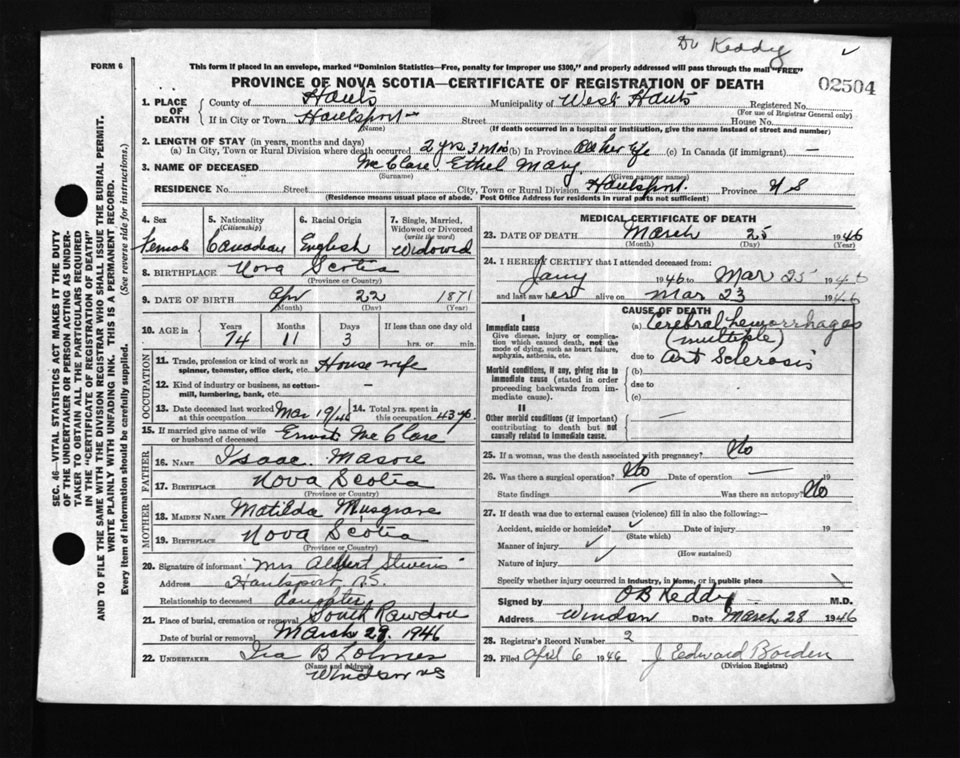 Dr Keddy
FORM 6
This form if placed in an envelope, marked "Dominion Statistics—Free, penalty for improper use $300," and properly addressed will pass through the mail "FREE"
PROVINCE OF NOVA SCOTIA—CERTIFICATE OF REGISTRATION OF DEATH
02504
1. PLACE OF DEATH
County of Hants Municipality of West Hants Registered No.
(For use of Registrar General only)
If in City or Town Hantsport Street House No.
(Name) (If death occurred in a hospital or institution, give the name instead of street and number)
2. LENGTH OF STAY (in years, months and days)
(a) In City, Town or Rural Division where death occurred 2 yrs 3 mos (b) In Province All her life (c) In Canada (if immigrant) —
3. NAME OF DECEASED McClare, Ethel Mary
(Surname) (Given name or names)
RESIDENCE No. Street City, Town or Rural Division Hantsport. Province N S
(Residence means usual place of abode. Post Office Address for residents in rural parts not sufficient)
4. Sex 5. Nationality 6. Racial Origin 7. Single, Married, Widowed or Divorced
(Citizenship) (write the word)
Female Canadian English Widowed
8. BIRTHPLACE Nova Scotia
(Province or Country)
9. DATE OF BIRTH Apr 22 1871
(Month) (Day) (Year)
10. AGE in Years Months Days If less than one day old
74 11 3 hrs. or min.
OCCUPATION
11. Trade, profession or kind of work as spinner, teamster, office clerk, etc. House wife
12. Kind of industry or business, as cotton-mill, lumbering, bank, etc. —
13. Date deceased last worked at this occupation Mar 19/46 14. Total yrs. spent in this occupation 43 yrs.
15. If married give name of wife or husband of deceased Ernest McClare
FATHER
16. NAME Isaac Mason
17. BIRTHPLACE Nova Scotia
(Province or Country)
MOTHER
18. MAIDEN NAME Matilda Musgrave
19. BIRTHPLACE Nova Scotia
(Province or Country)
20. Signature of informant "Mrs Albert Stevens"
Address Hantsport N.S.
Relationship to deceased daughter
21. Place of burial, cremation or removal South Rawdon
Date of burial or removal March 29, 1946
22. UNDERTAKER Ira B Lohnes
(Name and address)
Windsor NS
MEDICAL CERTIFICATE OF DEATH
23. DATE OF DEATH March 25 1946
(Month) (Day) (Year)
24. I HEREBY CERTIFY that I attended deceased from:
Jany 1946 to Mar 25 1946
and last saw her alive on Mar 23 1946
CAUSE OF DEATH
I
Immediate cause
Give disease, injury or complication which caused death, not the mode of dying, such as heart failure, asphyxia, asthenia, etc.
(a) Cerebral hemorrhages
(multiple)
due to Art Sclerosis
Morbid conditions, if any, giving rise to immediate cause (stated in order proceeding backwards from immediate cause).
(b)
due to
(c)
II
Other morbid conditions (if important) contributing to death but not causally related to immediate cause.
25. If a woman, was the death associated with pregnancy? No
26. Was there a surgical operation? No Date of operation — 19
State findings — Was there an autopsy? No
27. If death was due to external causes (violence) fill in also the following:—
Accident, suicide or homicide? Date of injury 19
(State which)
Manner of injury
(How sustained)
Nature of injury
Specify whether injury occurred in industry, in home, or in public place
Signed by O B Keddy M.D.
Address Windsor Date March 28 1946
28. Registrar's Record Number 2
29. Filed April 6 1946 J. Edward Borden
(Division Registrar)
SEC. 46—VITAL STATISTICS ACT MAKES IT THE DUTY
OF THE UNDERTAKER OR PERSON ACTING AS UNDER-
TAKER TO OBTAIN ALL THE PARTICULARS REQUIRED
IN THE "CERTIFICATE OF REGISTRATION OF DEATH"
AND TO FILE THE SAME WITH THE DIVISION REGISTRAR WHO SHALL ISSUE THE BURIAL PERMIT.
WRITE PLAINLY WITH UNFADING INK. THIS IS A PERMANENT RECORD.
Every item of information should be carefully supplied. (See reverse side for instructions.)